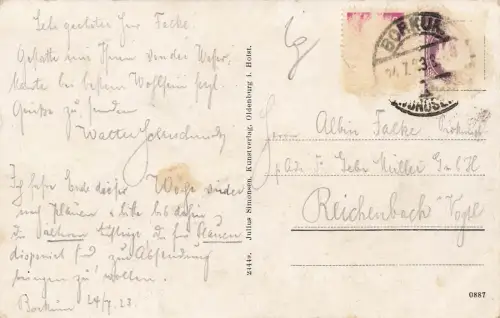 Sehr geehrter Herr Falke.
Gestatte mir Ihnen von der Wasser-
kante bei bestem Wohlsein frdl.
Grüsse zu senden
Walter
Ich fahre Ende dieser Woche wieder
nach Plauen & bitte bis dahin
die für Plauen
disponiert zur Absendung
bringen zu wollen.
Borkum 24/7.23.
2444z. Julius Simonsen, Kunstverlag, Oldenburg i. Holst.
BORKUM
24.7.23
Herrn Albin Falke
p. Adr. Fa. Gebr. Müller G.m.b.H
Reichenbach Vogtl
0887